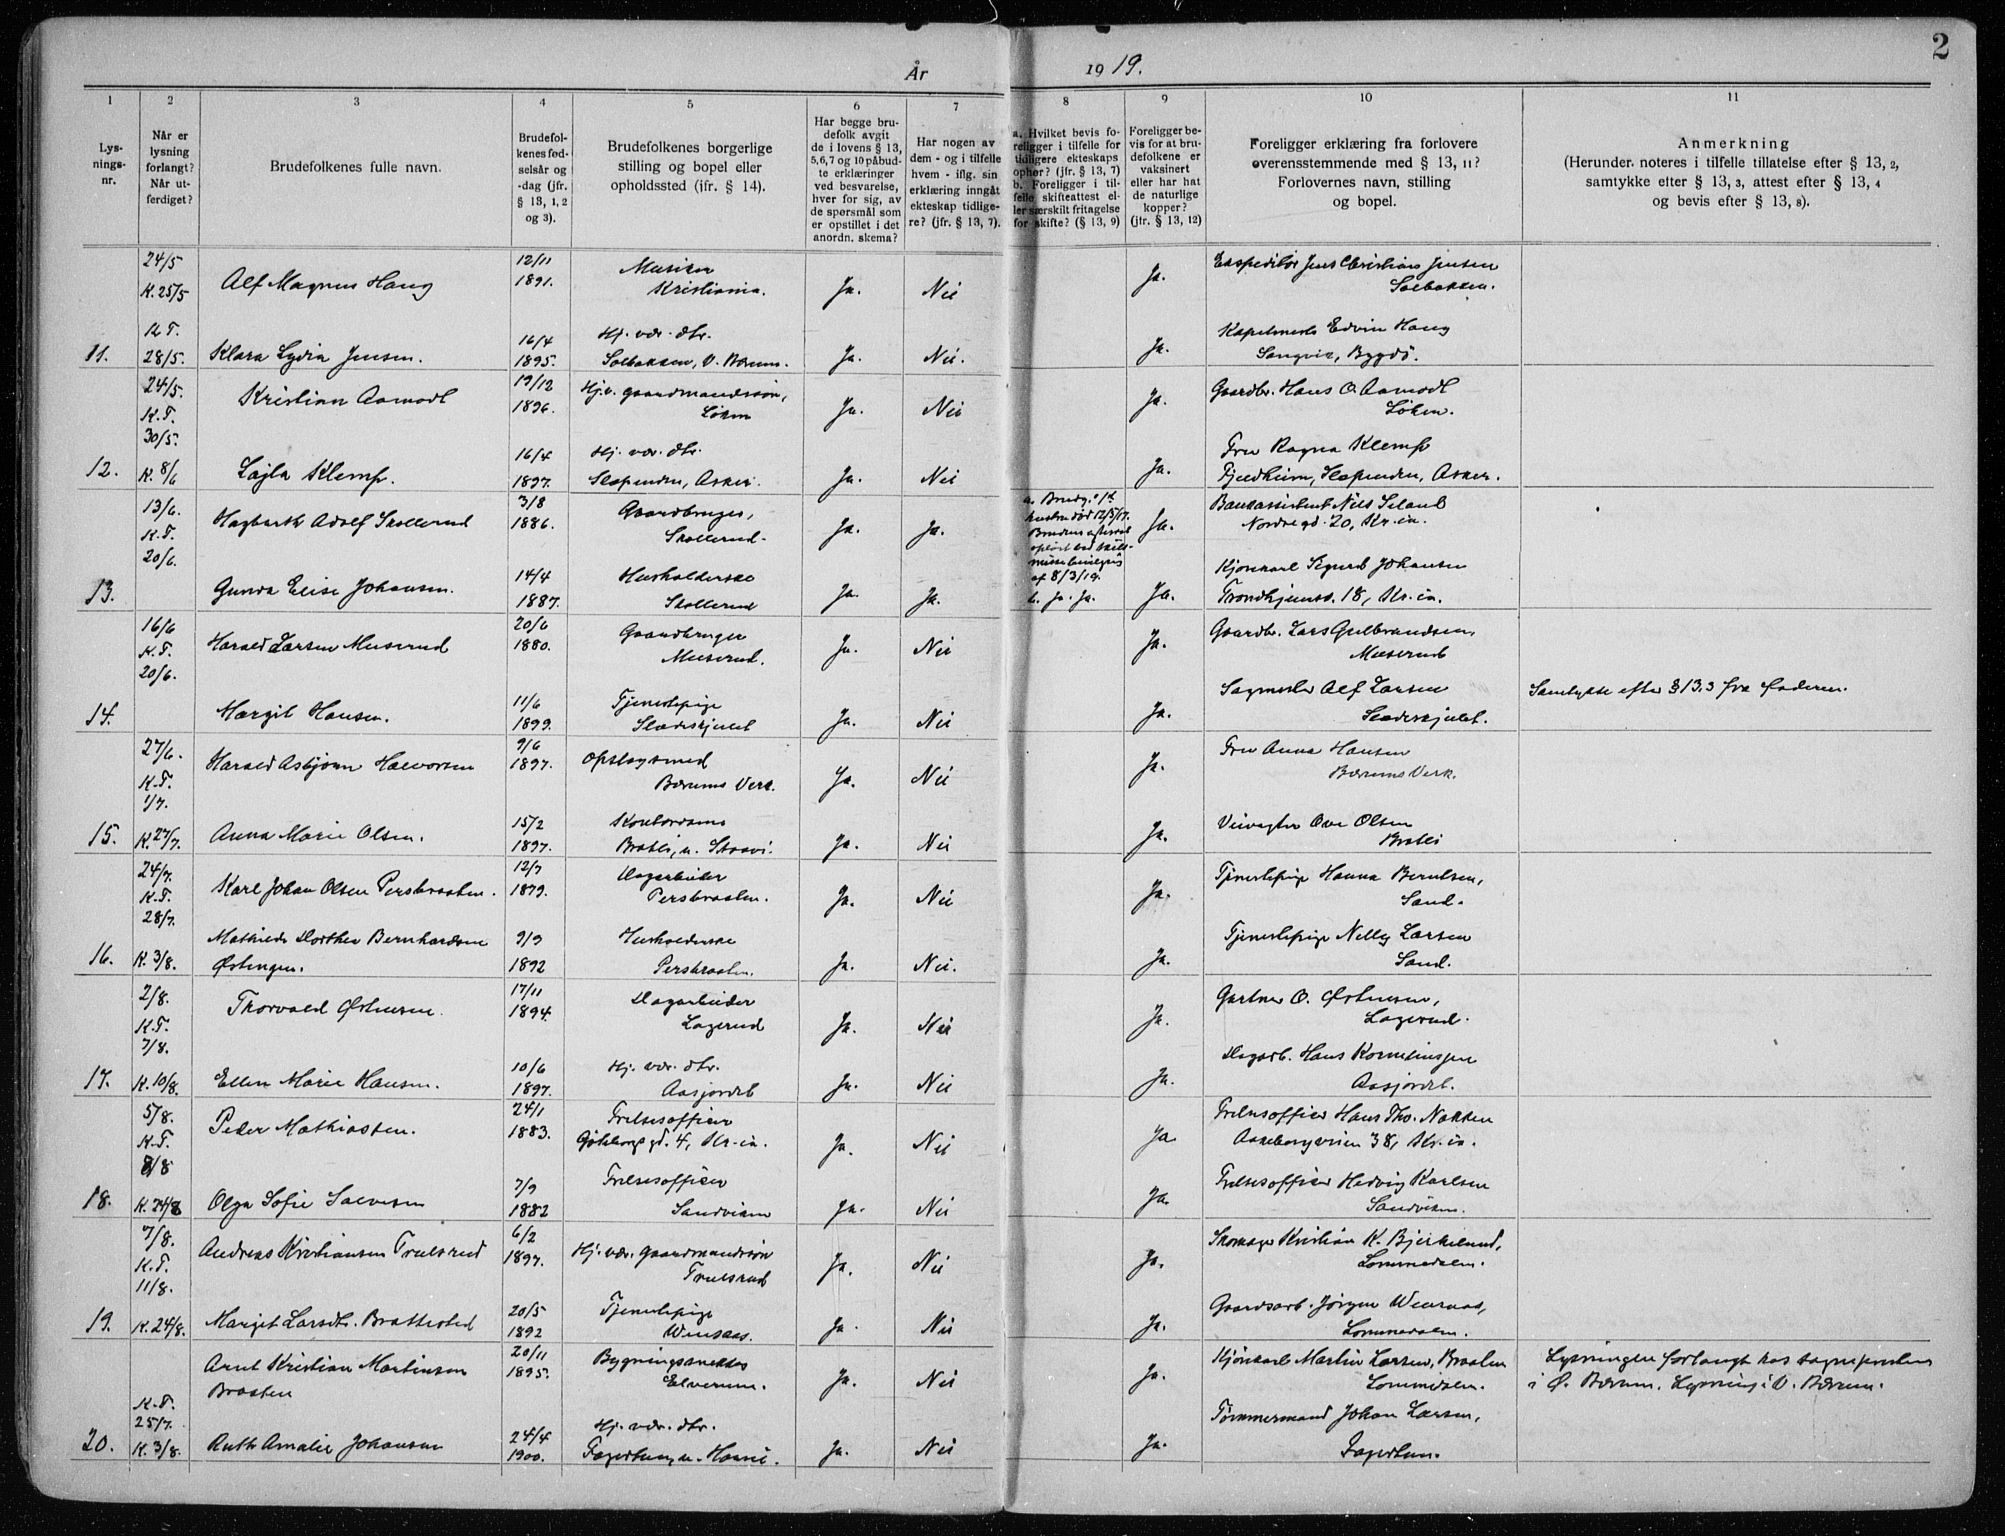 2
År 1919.
1 2 3 4 5 6 7 8 9 10 11
Lys-
nings-
nr.
Når er
lysning
forlangt?
Når ut-
ferdiget?
Brudefolkenes fulle navn.
Brudefol-
kenes fød-
selsår og
-dag (jfr.
§ 13, 1, 2
og 3).
Brudefolkenes borgerlige
stilling og bopel eller
opholdssted (jfr. § 14).
Har begge bru-
defolk avgit
de i lovens § 13,
5,6,7 og 10 påbud-
te erklæringer
ved besvarelse,
hver for sig, av
de spørsmål som
er opstillet i det
anordn. skema?
Har nogen av
dem - og i tilfelle
hvem - iflg. sin
erklæring inngåt
ekteskap tidlige-
re? (jfr. § 13, 7).
a. Hvilket bevis fo-
religger i tilfelle for
tidligere ekteskaps
ophør? (jfr. § 13, 7)
b. Foreligger i til-
felle skifteattest el-
ler særskilt fritagelse
for skifte? (§ 13, 9)
Foreligger be-
vis for at bru-
defolkene er
vaksinert
eller har hat
de naturlige
kopper?
(jfr. § 13, 12)
Foreligger erklæring fra forlovere
overensstemmende med § 13, 11?
Forlovernes navn, stilling
og bopel.
Anmerkning
(Herunder. noteres i tilfelle tillatelse efter § 13, 2,
samtykke efter § 13, 3, attest efter § 13, 4
og bevis efter § 13, 8).
24/5 K. 25/5 Alf Magnus Haug 12/11 1891. Musiker Kristiania. Ja. Nei Ja. Ekspeditør Jens Christian Jensen Solbakken.
11. K.T. 28/5. Klara Lydia Jensen. 16/4 1895. Hj. vær. dtr. Solbakken, V. Bærum. Ja. Nei. Ja. Kapelmester Edvin Haug Bygdø.
24/5. K.T. 30/5. Kristian Aamodt 19/12 1896. Hj.v. gaardmandssøn, Løken Ja. Nei Ja. Gaardbr. Hans O. Aamodt Løken.
12. K. 8/6 Lajla Klemp. 16/4 1897. Hj. vær. dtr. Slependen, Asker. Ja. Nei Ja. Fru Ragna Klemp Fjeldheim, Slependen, Asker.
13/6. K.T. 20/6. Hagbarth Adolf Skollerud 3/8 1886. Gaardbruger, Skollerud. Ja. Ja. a. Brudg. 1ste hustru død 12/5/17. Ja. Bankassistent Nils Seland Nordregd. 20, Kr.ia.
13. Gunda Elise Johansen. 14/4 1887. Husholderske Skollerud Ja. Ja. af 8/3/19. b. Ja. Ja. Ja. Kjørekarl Sigurd Johansen Trondhjemsv. 18, Kr.ia.
16/6 K.T. 20/6. Harald Larsen Muserud 20/6 1880. Gaardbruger Muserud. Ja. Nei Ja. Gaardbr. Lars Gulbrandsen, Muserud
14. Margit Hansen. 11/6 1899. Tjenestepige Sladeskjulet Ja. Nei Ja. Sagmester Alf Larsen Sladeskjulet. Samtykke efter § 13.3 fra faderen.
27/6. K.T. 1/7. Harald Asbjørn Halvorsen 9/6 1897. Opslagsmed Bærums Verk. Ja. Nei Ja. Fru Anna Hansen Bærums Verk.
15. K. 27/7. Anna Marie Olsen. 15/2 1897. Kontordame Bratli, Ja. Nei Ja. Veivogter Ove Olsen Bratli
24/7. K.T. 28/7. Karl Johan Olsen Persbraaten. 12/7 1879. Dagarbeider Persbraaten. Ja. Nei Ja. Tjenestepige Hanna Berntsen, Sand.
16. K. 3/8. Mathilde Dorthea Bernhardsen Østengen. 9/9 1892 Husholderske Persbraaten. Ja. Nei. Ja. Tjenestepige Nelly Larsen Sand.
2/8. K.T. 7/8. Thorvald Østensen. 17/11 1894. Dagarbeider Lagerud Ja. Nei Ja. Gartner O. Østensen, Lagerud.
17. K. 10/8. Ellen Marie Hansen. 10/6 1897. Hj. vær. dtr. Aasjordet Ja. Nei Ja. Dagarb. Hans Korneliussen Aasjordet.
5/8. K.T. 8/8 Peder Mathiassen. 24/1 1883. Frelsesofficer Gøteborggd. 4, Kr.ia. Ja. Nei Ja. Frelsesofficer Hans Tho. Nakken Aakebergveien 38, Kr.ia.
18. K. 24/8 Olga Sofie Salvesen 7/9 1882 Frelsesofficer Sandviken Ja. Nei Ja. Frelsesofficer Hedvig Karlsen Sandviken.
7/8. K.T. 11/8. Andreas Kristiansen Trulsrud 6/2 1897. Hj. vær. gaardmandssøn Trulsrud Ja. Nei Ja. Skomager Kristian K. Bjerkelund, Lommedalen.
19. K. 24/8. Margit Larsdtr. Brattestad 20/5 1892 Tjenestepige Wensaas. Ja. Nei Ja. Gaardsarb. Jørgen Wensaas, Lommedalen.
K.T. 25/7. Arnt Kristian Martinsen Braaten 20/11 1895. Bygningssnekker Elverum. Ja. Nei Ja. Kjørekarl Martin Larsen, Braaten Lommedalen. Lysningen forlangt hos sogneprest i Ø. Bærum. Lysning i V. Bærum.
20. K. 3/8. Ruth Amalie Johansen 24/4 1900. Hj. vær. dtr. Fagertun, Ja. Nei Ja. Tømmermand Johan Larsen, Fagertun.